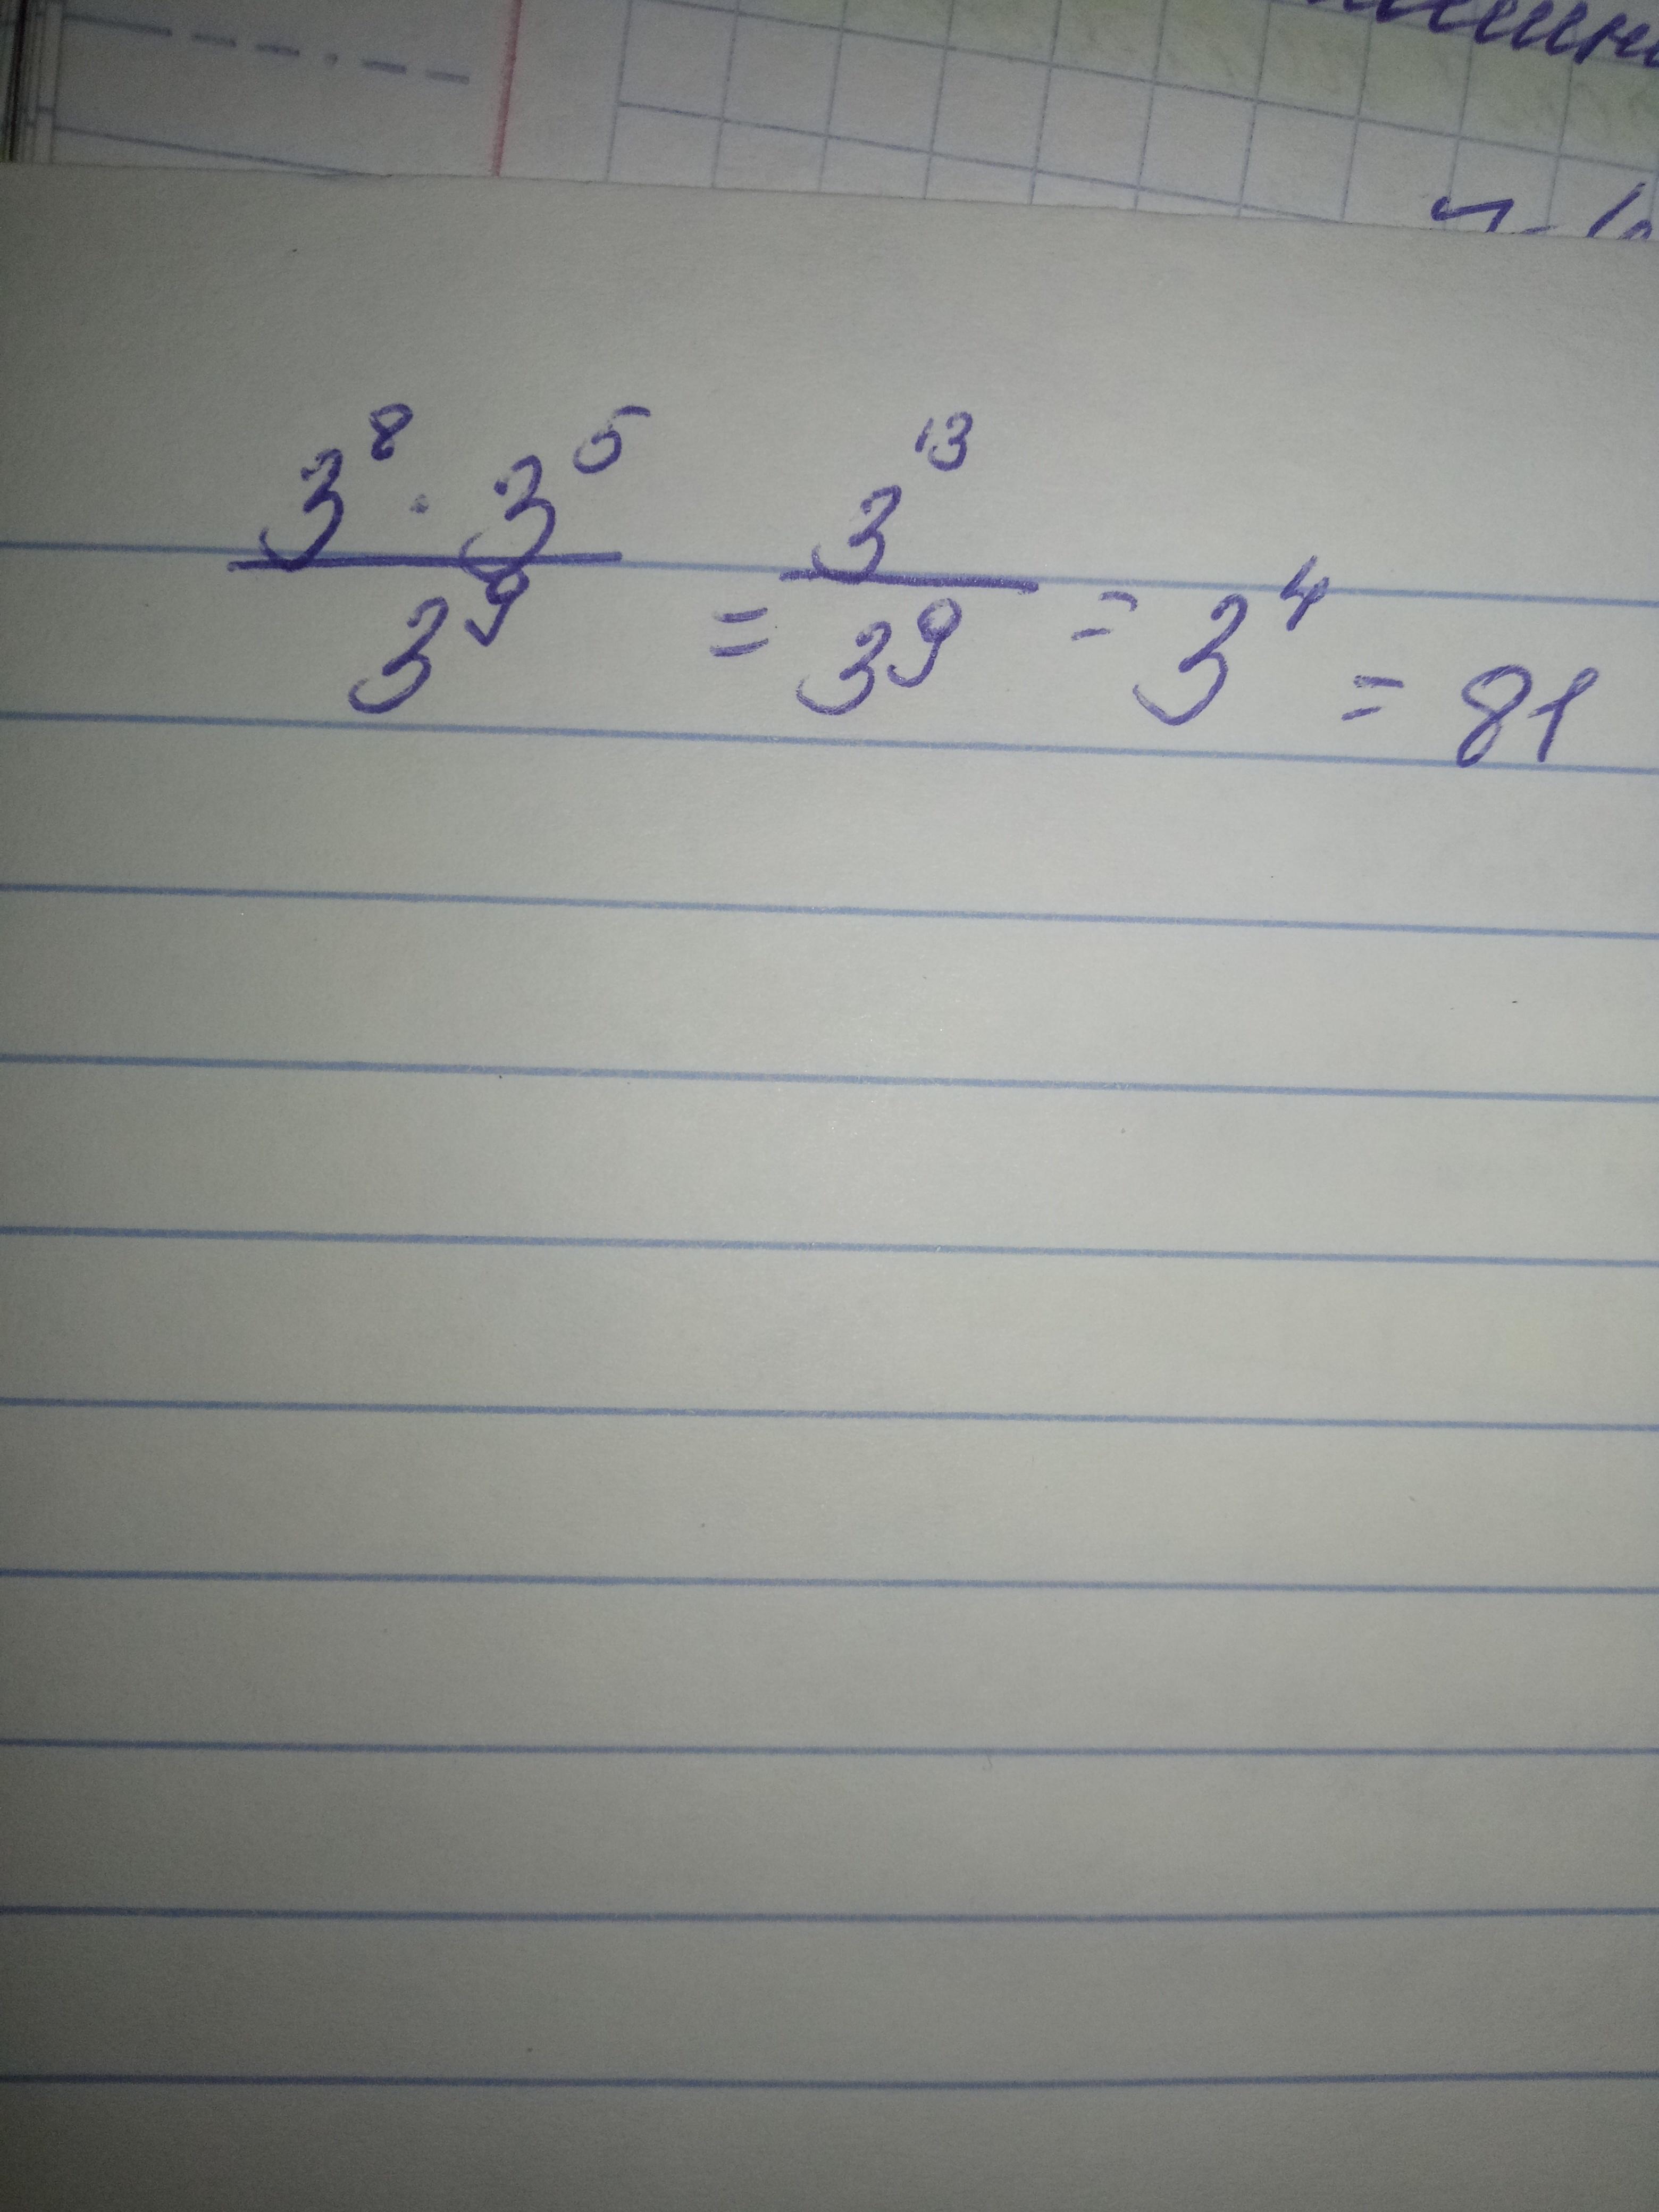 3⁸ · 3⁵ / 3⁹ = 3¹³ / 3⁹ = 3⁴ = 81